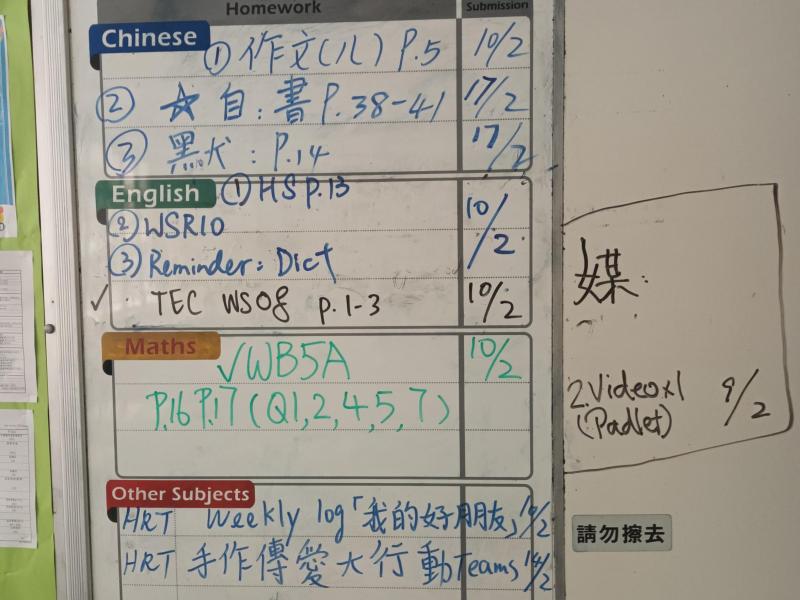 Homework Submission
Chinese ① 作文(八) P.5 10/2
② ☆ 自:書 P.38-41 17/2
③ 黑犬: P.14 17/2
English ① HS p.13 10/2
② WSR10
③ Reminder: Dict
✓ TEC WS08 p. 1-3 10/2
Maths ✓WB5A 10/2
P.16 P.17 (Q1,2,4,5,7)
Other Subjects
HRT Weekly log「我的好朋友」
HRT 手作傳愛大行動Teams 14/2
媒:
2.Video x1 9/2
(Padlet)
請勿擦去